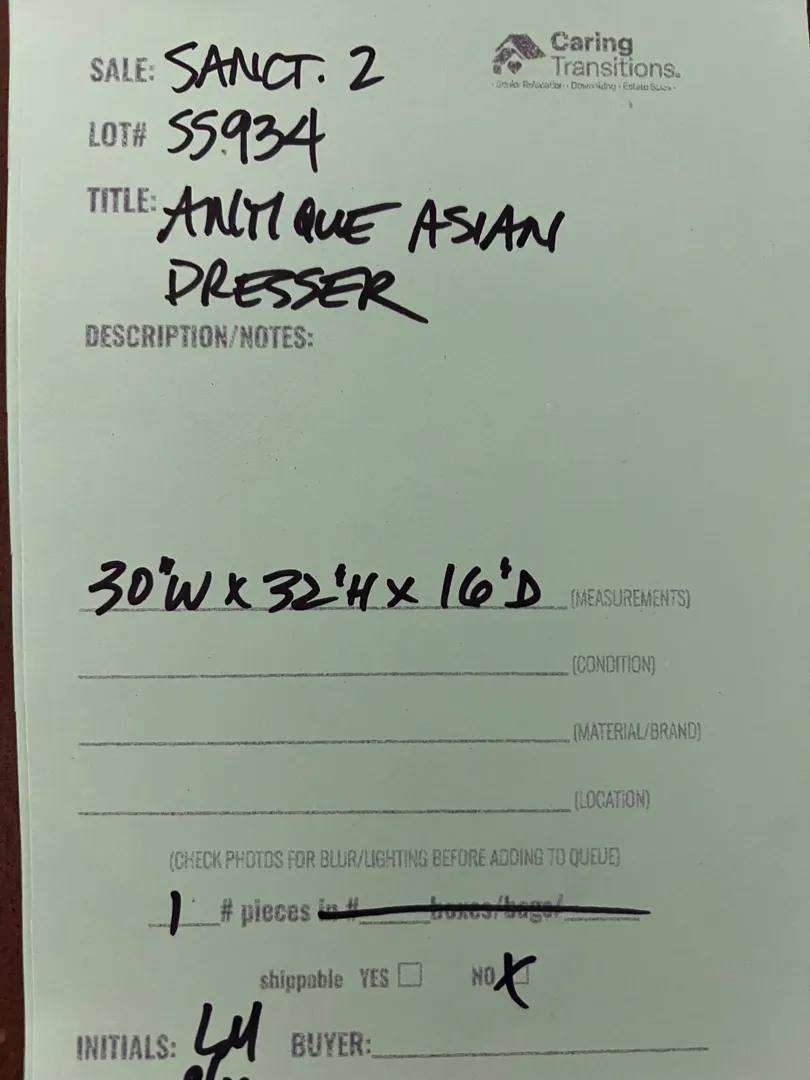 SALE: SANCT. 2
Caring
Transitions.
- Senior Relocation - Downsizing - Estate Sales -
LOT# SS.934
TITLE: ANTIQUE ASIAN
DRESSER
DESCRIPTION/NOTES:
30"W X 32"H X 16"D (MEASUREMENTS)
(CONDITION)
(MATERIAL/BRAND)
(LOCATION)
(CHECK PHOTOS FOR BLUR/LIGHTING BEFORE ADDING TO QUEUE)
1 # pieces in # boxes/bags/
shippable YES NO X
INITIALS: LM BUYER: